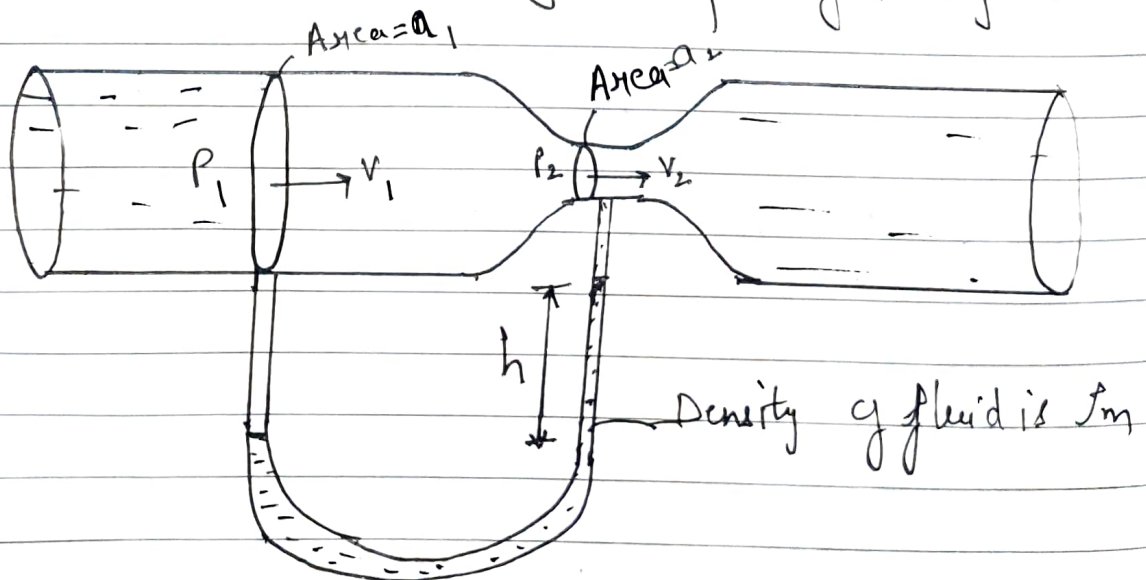 Area=a₁
Area=a₂
P₁
V₁
P₂
V₂
h
Density of fluid is ρm